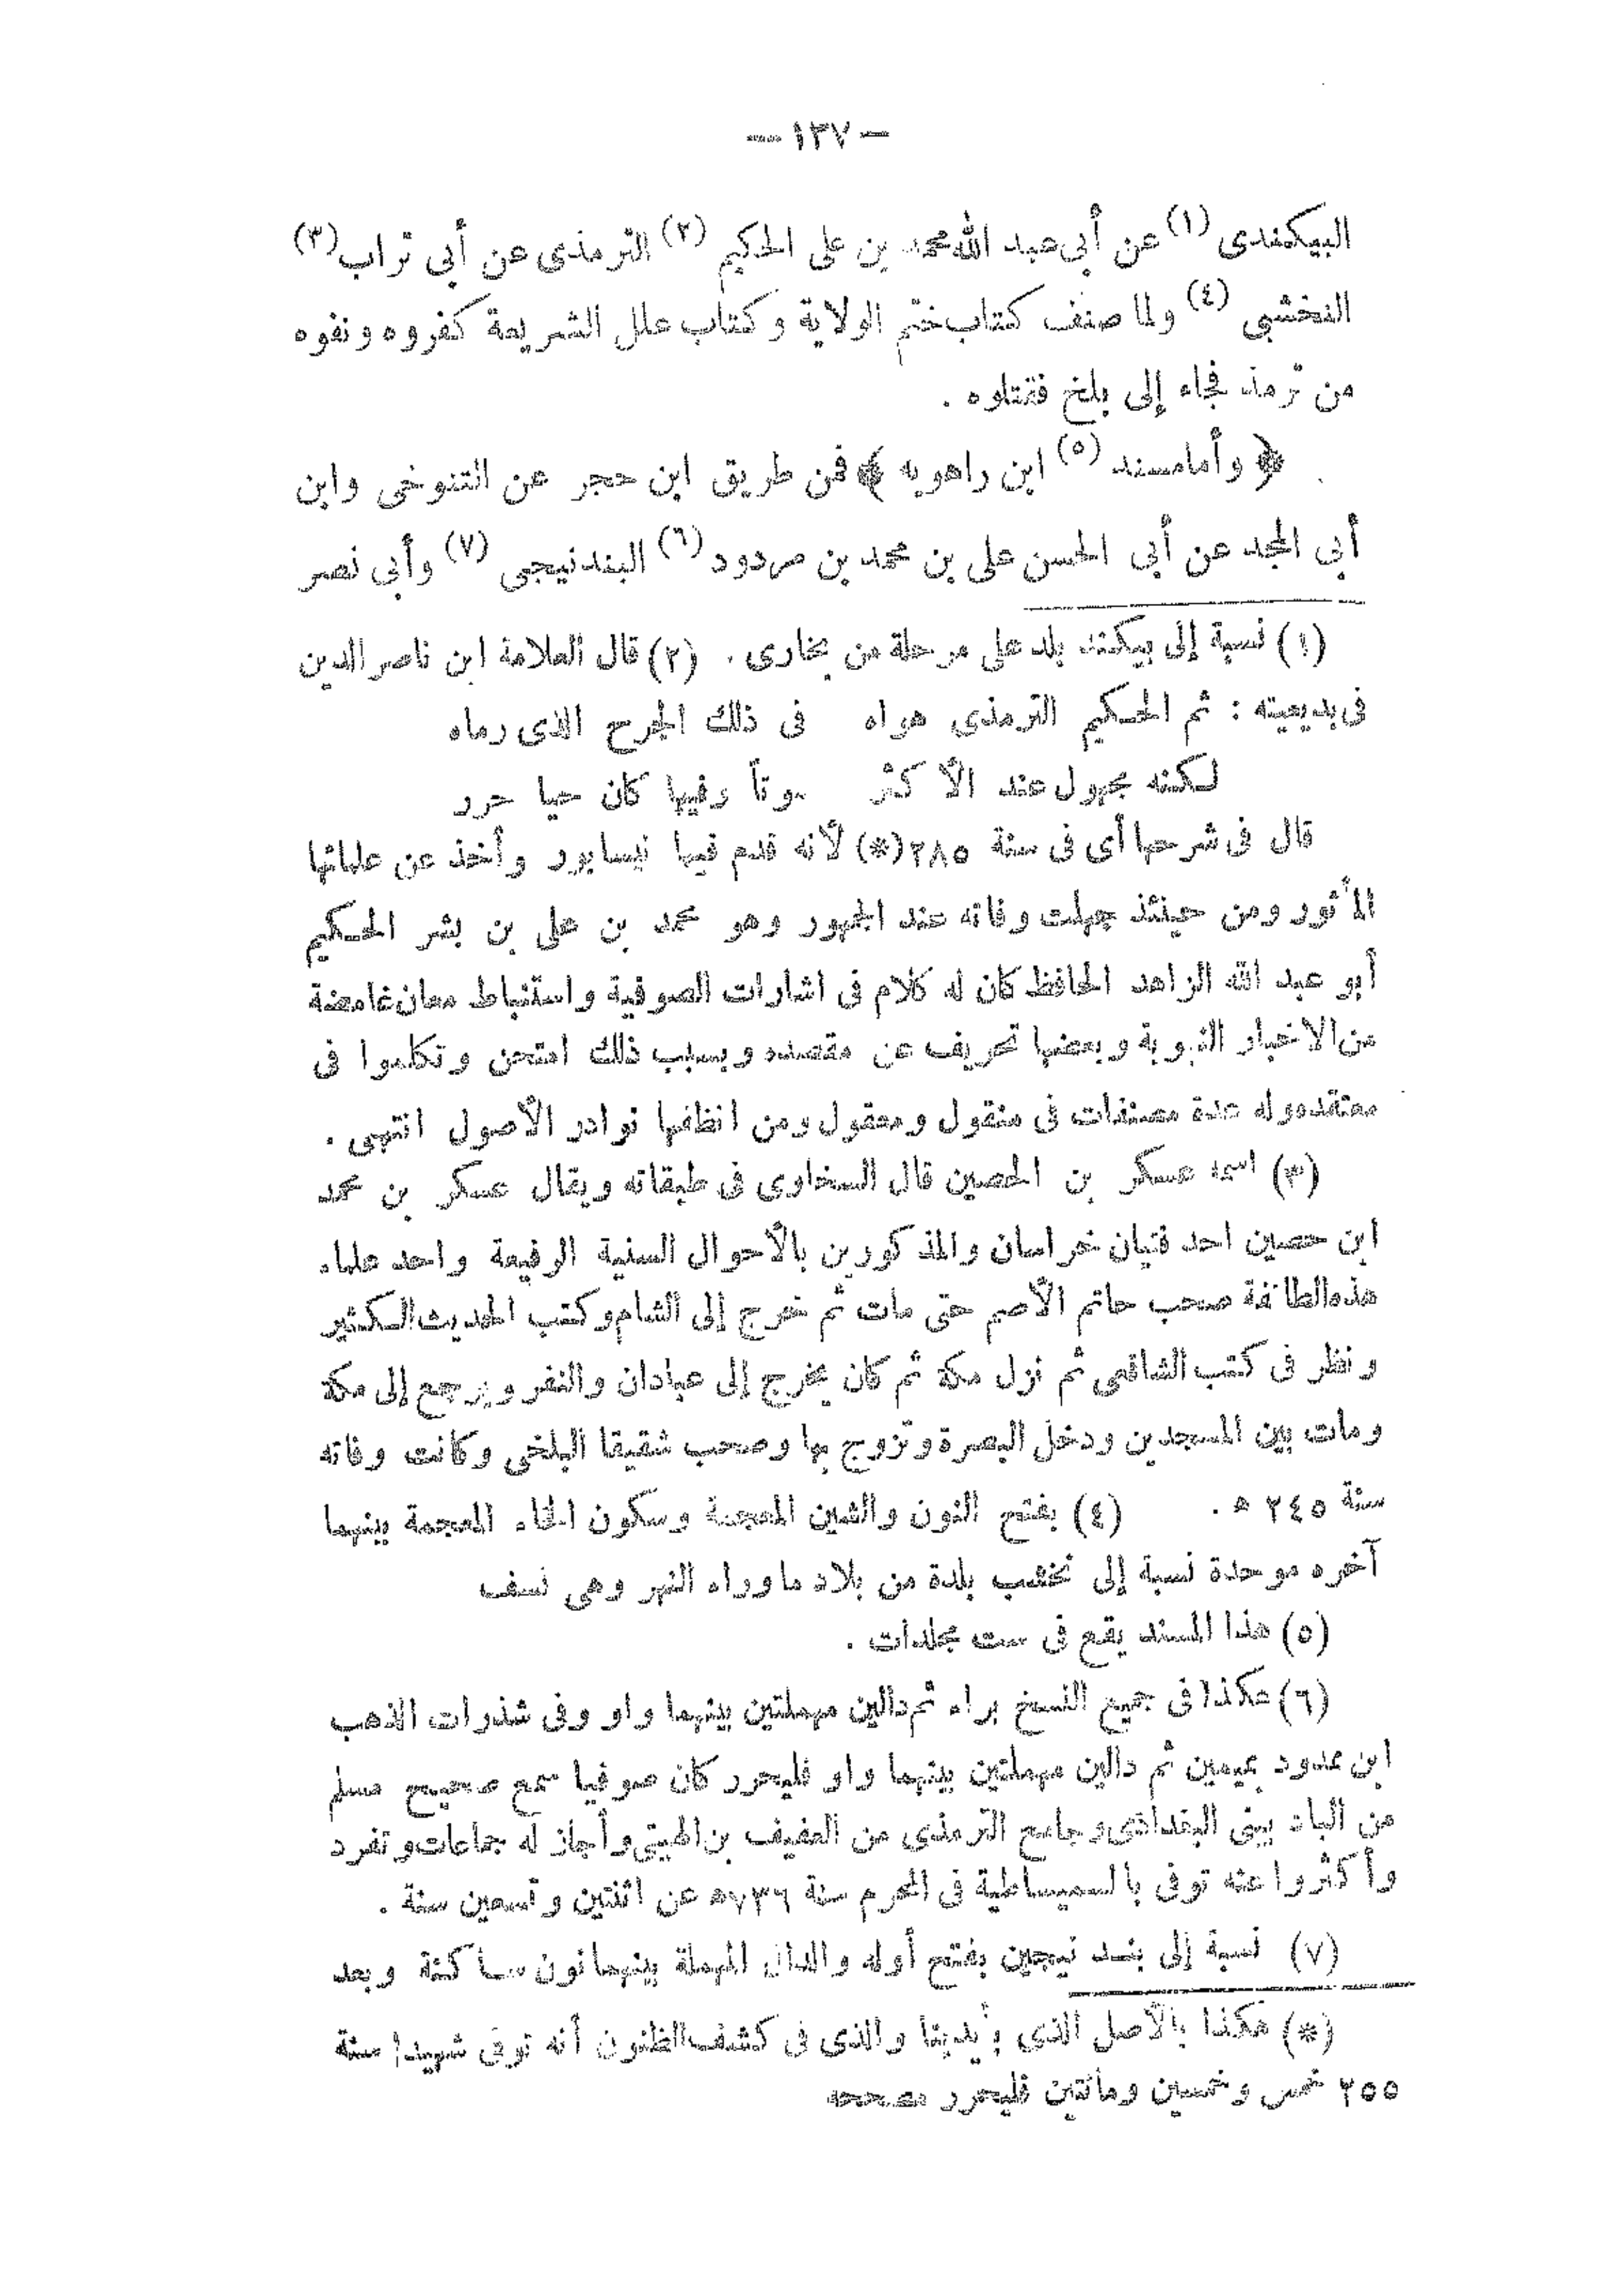 — ١٣٧ —
البيكندى (١) عن أبى عبد الله محمد بن على الحكيم (٢) الترمذى عن أبي تراب (٣)
النخشبى (٤) ولما صنف كتاب ختم الولاية وكتاب علل الشريعة كفروه ونفوه
من ترمذ فجاء إلى بلخ فقتلوه .
﴿ وأما مسند (٥) ابن راهويه ﴾ فمن طريق ابن حجر عن التنوخى وابن
أبى المجد عن أبى الحسن على بن محمد بن مردود (٦) البندنيجى (٧) وأبى نصر
(١) نسبة إلى بيكند بلد على مرحلة من بخارى . (٢) قال العلامة ابن ناصر الدين
فى بديعيته : ثم الحكيم الترمذى هواه فى ذلك الجرح الذى رماه
لكنه مجهول عند الأكثر موتاً وفيها كان حيا حرر
قال فى شرحها أى فى سنة ٢٨٥ (*) لأنه قدم فيها نيسابور وأخذ عن علمائها
المأثور ومن حينئذ جهلت وفاته عند الجمهور وهو محمد بن على بن بشر الحكيم
أبو عبد الله الزاهد الحافظ كان له كلام فى اشارات الصوفية واستنباط معان غامضة
من الاخبار النبوية وبعضها تحريف عن مقصده وبسبب ذلك امتحن وتكلموا فى
معتقده وله عدة مصنفات فى منقول ومعقول ومن انظفها نوادر الأصول انتهى .
(٣) اسمه عسكر بن الحصين قال السخاوى فى طبقاته ويقال عسكر بن محمد
ابن حصين احد فتيان خراسان والمذكورين بالأحوال السنية الرفيعة واحد علماء
هذه الطائفة صحب حاتم الأصم حتى مات ثم خرج إلى الشام وكتب الحديث الكثير
ونظر فى كتب الشافعى ثم نزل مكة ثم كان يخرج إلى عبادان والثغر ويرجع إلى مكة
ومات بين المسجدين ودخل البصرة وتزوج بها وصحب شقيقا البلخى وكانت وفاته
سنة ٢٤٥ ه . (٤) بفتح النون والشين المعجمة وسكون الخاء المعجمة بينهما
آخره موحدة نسبة إلى نخشب بلدة من بلاد ما وراء النهر وهى نسف
(٥) هذا المسند يقع فى ست مجلدات .
(٦) هكذا فى جميع النسخ براء ثم دالين مهملتين بينهما واو وفى شذرات الذهب
ابن ممدود بميمين ثم دالين مهملتين بينهما واو فليحرر كان صوفيا سمع صحيح مسلم
من الباذ بينى البغدادى وجامع الترمذى من العفيف بن الهيتى وأجاز له جماعات وتفرد
وأكثروا عنه توفى بالسميساطية فى المحرم سنة ٧٣٦ه عن اثنتين وتسعين سنة .
(٧) نسبة إلى بند نيجين بفتح أوله والدال المهملة بينهما نون ساكنة وبعد
(*) هكذا بالأصل الذى بأيدينا والذى فى كشف الظنون أنه توفى شهيدا سنة
٢٥٥ خمس وخمسين ومائتين فليحرر مصححه